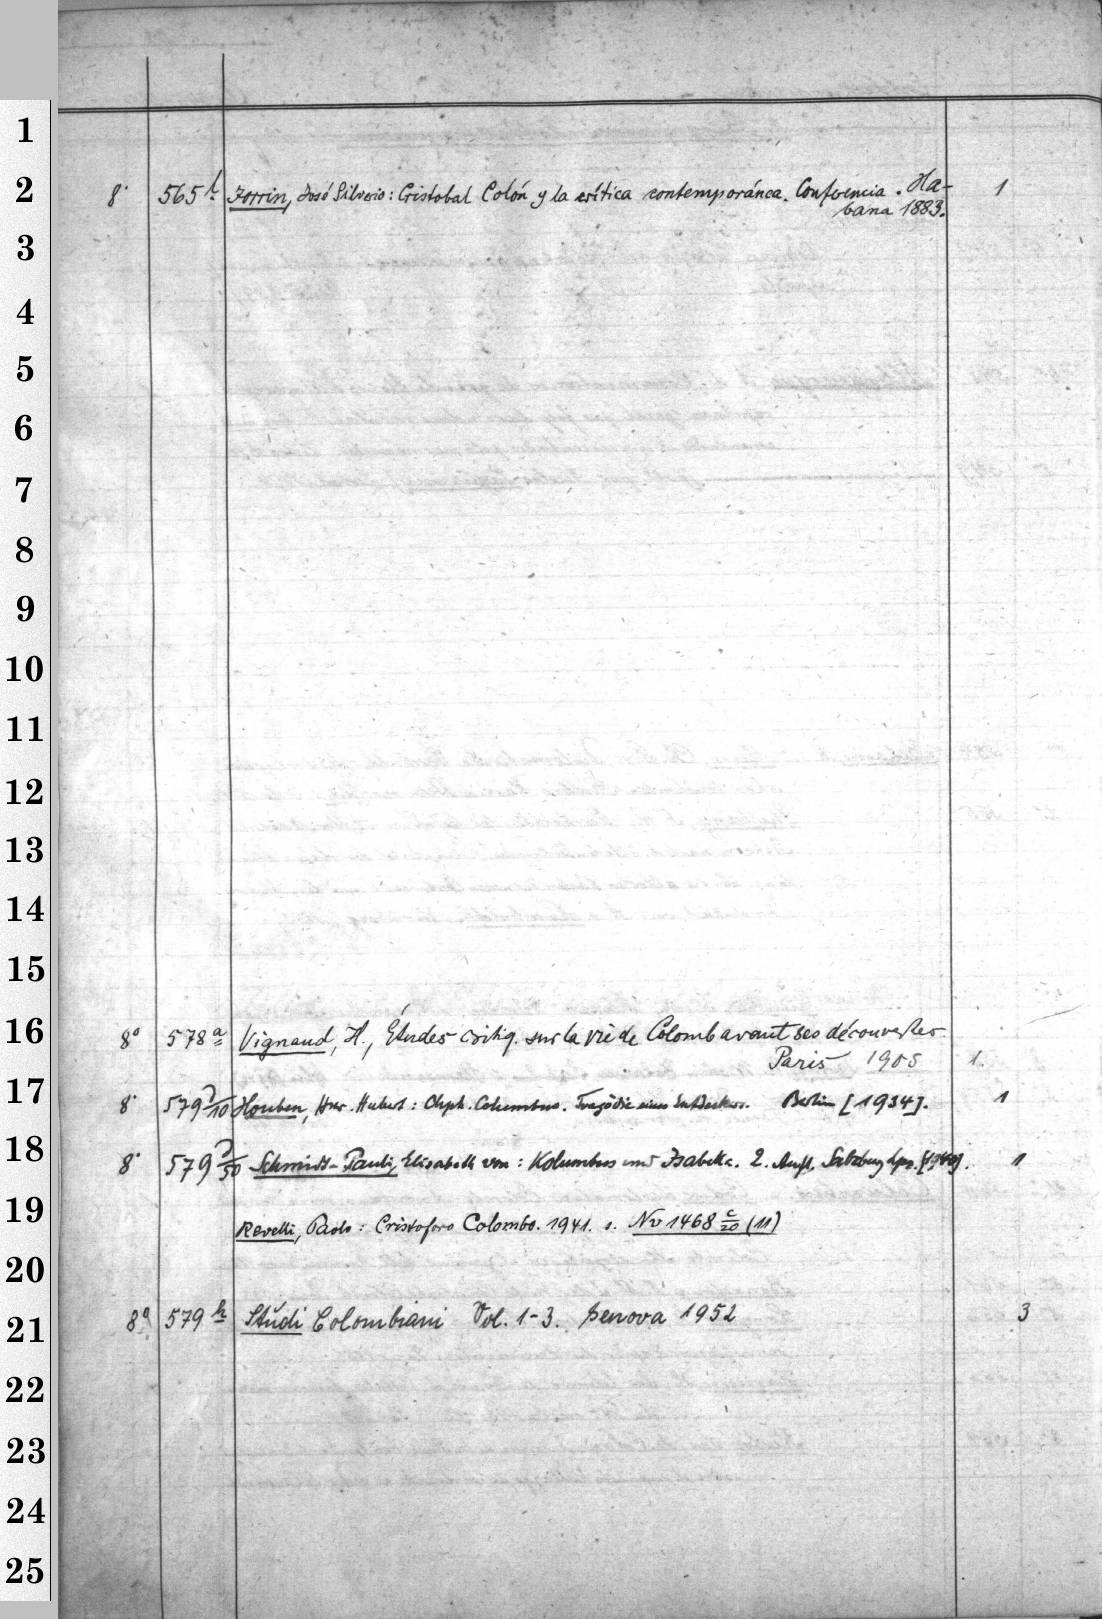 1
2
3
4
5
6
7
8
9
10
11
12
13
14
15
16
17
18
19
20
21
22
23
24
25
8° 565 Zorrin, José Silverio: Cristobal Colón y la crítica contemporánea. Conferencia. Ha- 1
bana 1883.
8° 578 a Vignaud, H., Études critiq. sur la vie de Colomb avant ses découvertes.
Paris 1905 1.
8° 579 /10 Houben, Hnr. Hubert: Chph. Columbus. Tragödie eines Entdeckers. Berlin [1934]. 1
8° 579 /50 Schmidt-Pauli, Elisabeth von: Kolumbus und Isabella. 2. Aufl. Salzburg 1
Revelli, Paolo: Cristoforo Colombo. 1941. s. Nv 1468 c/20 (11)
8° 579 h Studi Colombiani Vol. 1-3. Genova 1952 3